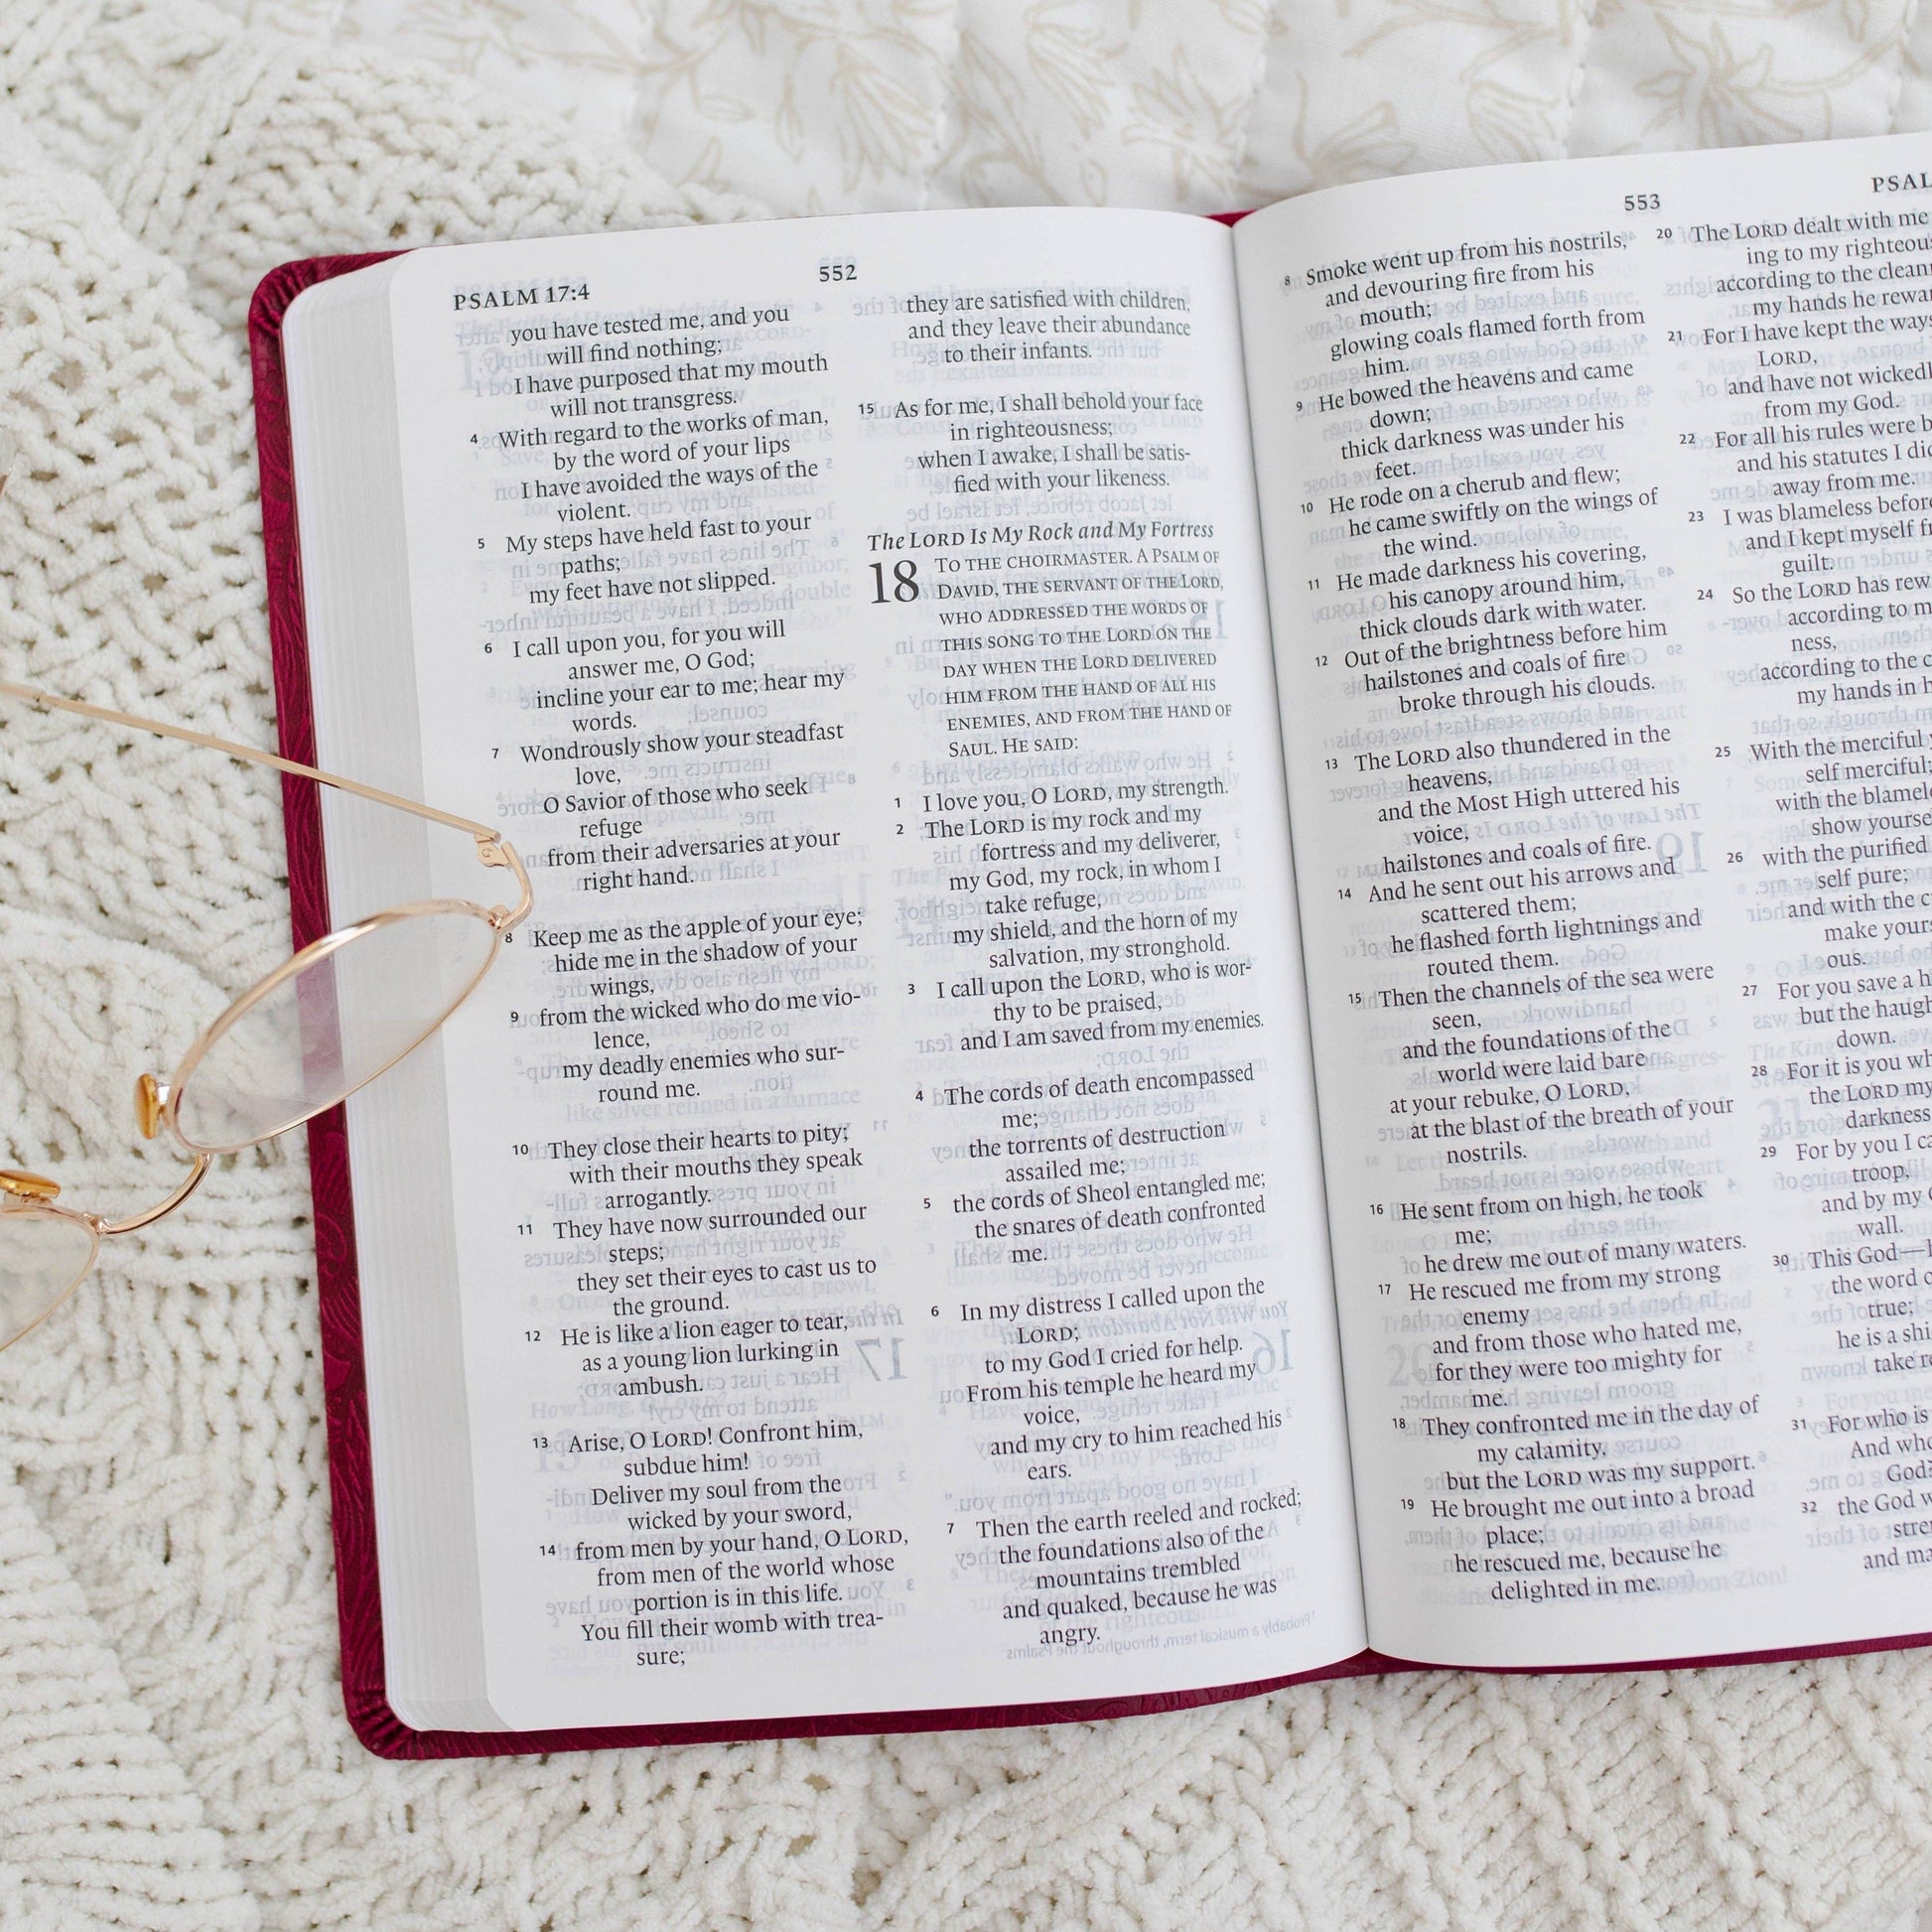 PSALM 17:4
552
you have tested me, and you
will find nothing;
I have purposed that my mouth
will not transgress.
4 With regard to the works of man,
by the word of your lips
I have avoided the ways of the
violent.
5 My steps have held fast to your
paths;
my feet have not slipped.
6 I call upon you, for you will
answer me, O God;
incline your ear to me; hear my
words.
7 Wondrously show your steadfast
love,
O Savior of those who seek
refuge
from their adversaries at your
right hand.
8 Keep me as the apple of your eye;
hide me in the shadow of your
wings,
9 from the wicked who do me vio-
lence,
my deadly enemies who sur-
round me.
10 They close their hearts to pity;
with their mouths they speak
arrogantly.
11 They have now surrounded our
steps;
they set their eyes to cast us to
the ground.
12 He is like a lion eager to tear,
as a young lion lurking in
ambush.
13 Arise, O LORD! Confront him,
subdue him!
Deliver my soul from the
wicked by your sword,
14 from men by your hand, O LORD,
from men of the world whose
portion is in this life.
You fill their womb with trea-
sure;
they are satisfied with children,
and they leave their abundance
to their infants.
15 As for me, I shall behold your face
in righteousness;
when I awake, I shall be satis-
fied with your likeness.
The LORD Is My Rock and My Fortress
18 TO THE CHOIRMASTER. A PSALM OF
DAVID, THE SERVANT OF THE LORD,
WHO ADDRESSED THE WORDS OF
THIS SONG TO THE LORD ON THE
DAY WHEN THE LORD DELIVERED
HIM FROM THE HAND OF ALL HIS
ENEMIES, AND FROM THE HAND OF
SAUL. HE SAID:
1 I love you, O LORD, my strength.
2 The LORD is my rock and my
fortress and my deliverer,
my God, my rock, in whom I
take refuge,
my shield, and the horn of my
salvation, my stronghold.
3 I call upon the LORD, who is wor-
thy to be praised,
and I am saved from my enemies.
4 The cords of death encompassed
me;
the torrents of destruction
assailed me;
5 the cords of Sheol entangled me;
the snares of death confronted
me.
6 In my distress I called upon the
LORD;
to my God I cried for help.
From his temple he heard my
voice,
and my cry to him reached his
ears.
7 Then the earth reeled and rocked;
the foundations also of the
mountains trembled
and quaked, because he was
angry.
553
PSAL
8 Smoke went up from his nostrils,
and devouring fire from his
mouth;
glowing coals flamed forth from
him.
9 He bowed the heavens and came
down;
thick darkness was under his
feet.
10 He rode on a cherub and flew;
he came swiftly on the wings of
the wind.
11 He made darkness his covering,
his canopy around him,
thick clouds dark with water.
12 Out of the brightness before him
hailstones and coals of fire
broke through his clouds.
13 The LORD also thundered in the
heavens,
and the Most High uttered his
voice,
hailstones and coals of fire.
14 And he sent out his arrows and
scattered them;
he flashed forth lightnings and
routed them.
15 Then the channels of the sea were
seen,
and the foundations of the
world were laid bare
at your rebuke, O LORD,
at the blast of the breath of your
nostrils.
16 He sent from on high, he took
me;
he drew me out of many waters.
17 He rescued me from my strong
enemy
and from those who hated me,
for they were too mighty for
me.
18 They confronted me in the day of
my calamity,
but the LORD was my support.
19 He brought me out into a broad
place;
he rescued me, because he
delighted in me.
20 The LORD dealt with me
ing to my righteou
according to the clean
my hands he rewa
21 For I have kept the ways
LORD,
and have not wickedl
from my God.
22 For all his rules were b
and his statutes I di
away from me.
23 I was blameless before
and I kept myself fr
guilt.
24 So the LORD has rew
according to m
ness,
according to the c
my hands in h
25 With the merciful
self merciful;
with the blamel
show yourse
26 with the purified
self pure;
and with the c
make your
ous.
27 For you save a h
but the haugh
down.
28 For it is you wh
the LORD my
darkness
29 For by you I ca
troop,
and by my
wall.
30 This God—
the word o
true;
he is a shi
take re
31 For who is
And who
God?
32 the God w
stre
and ma